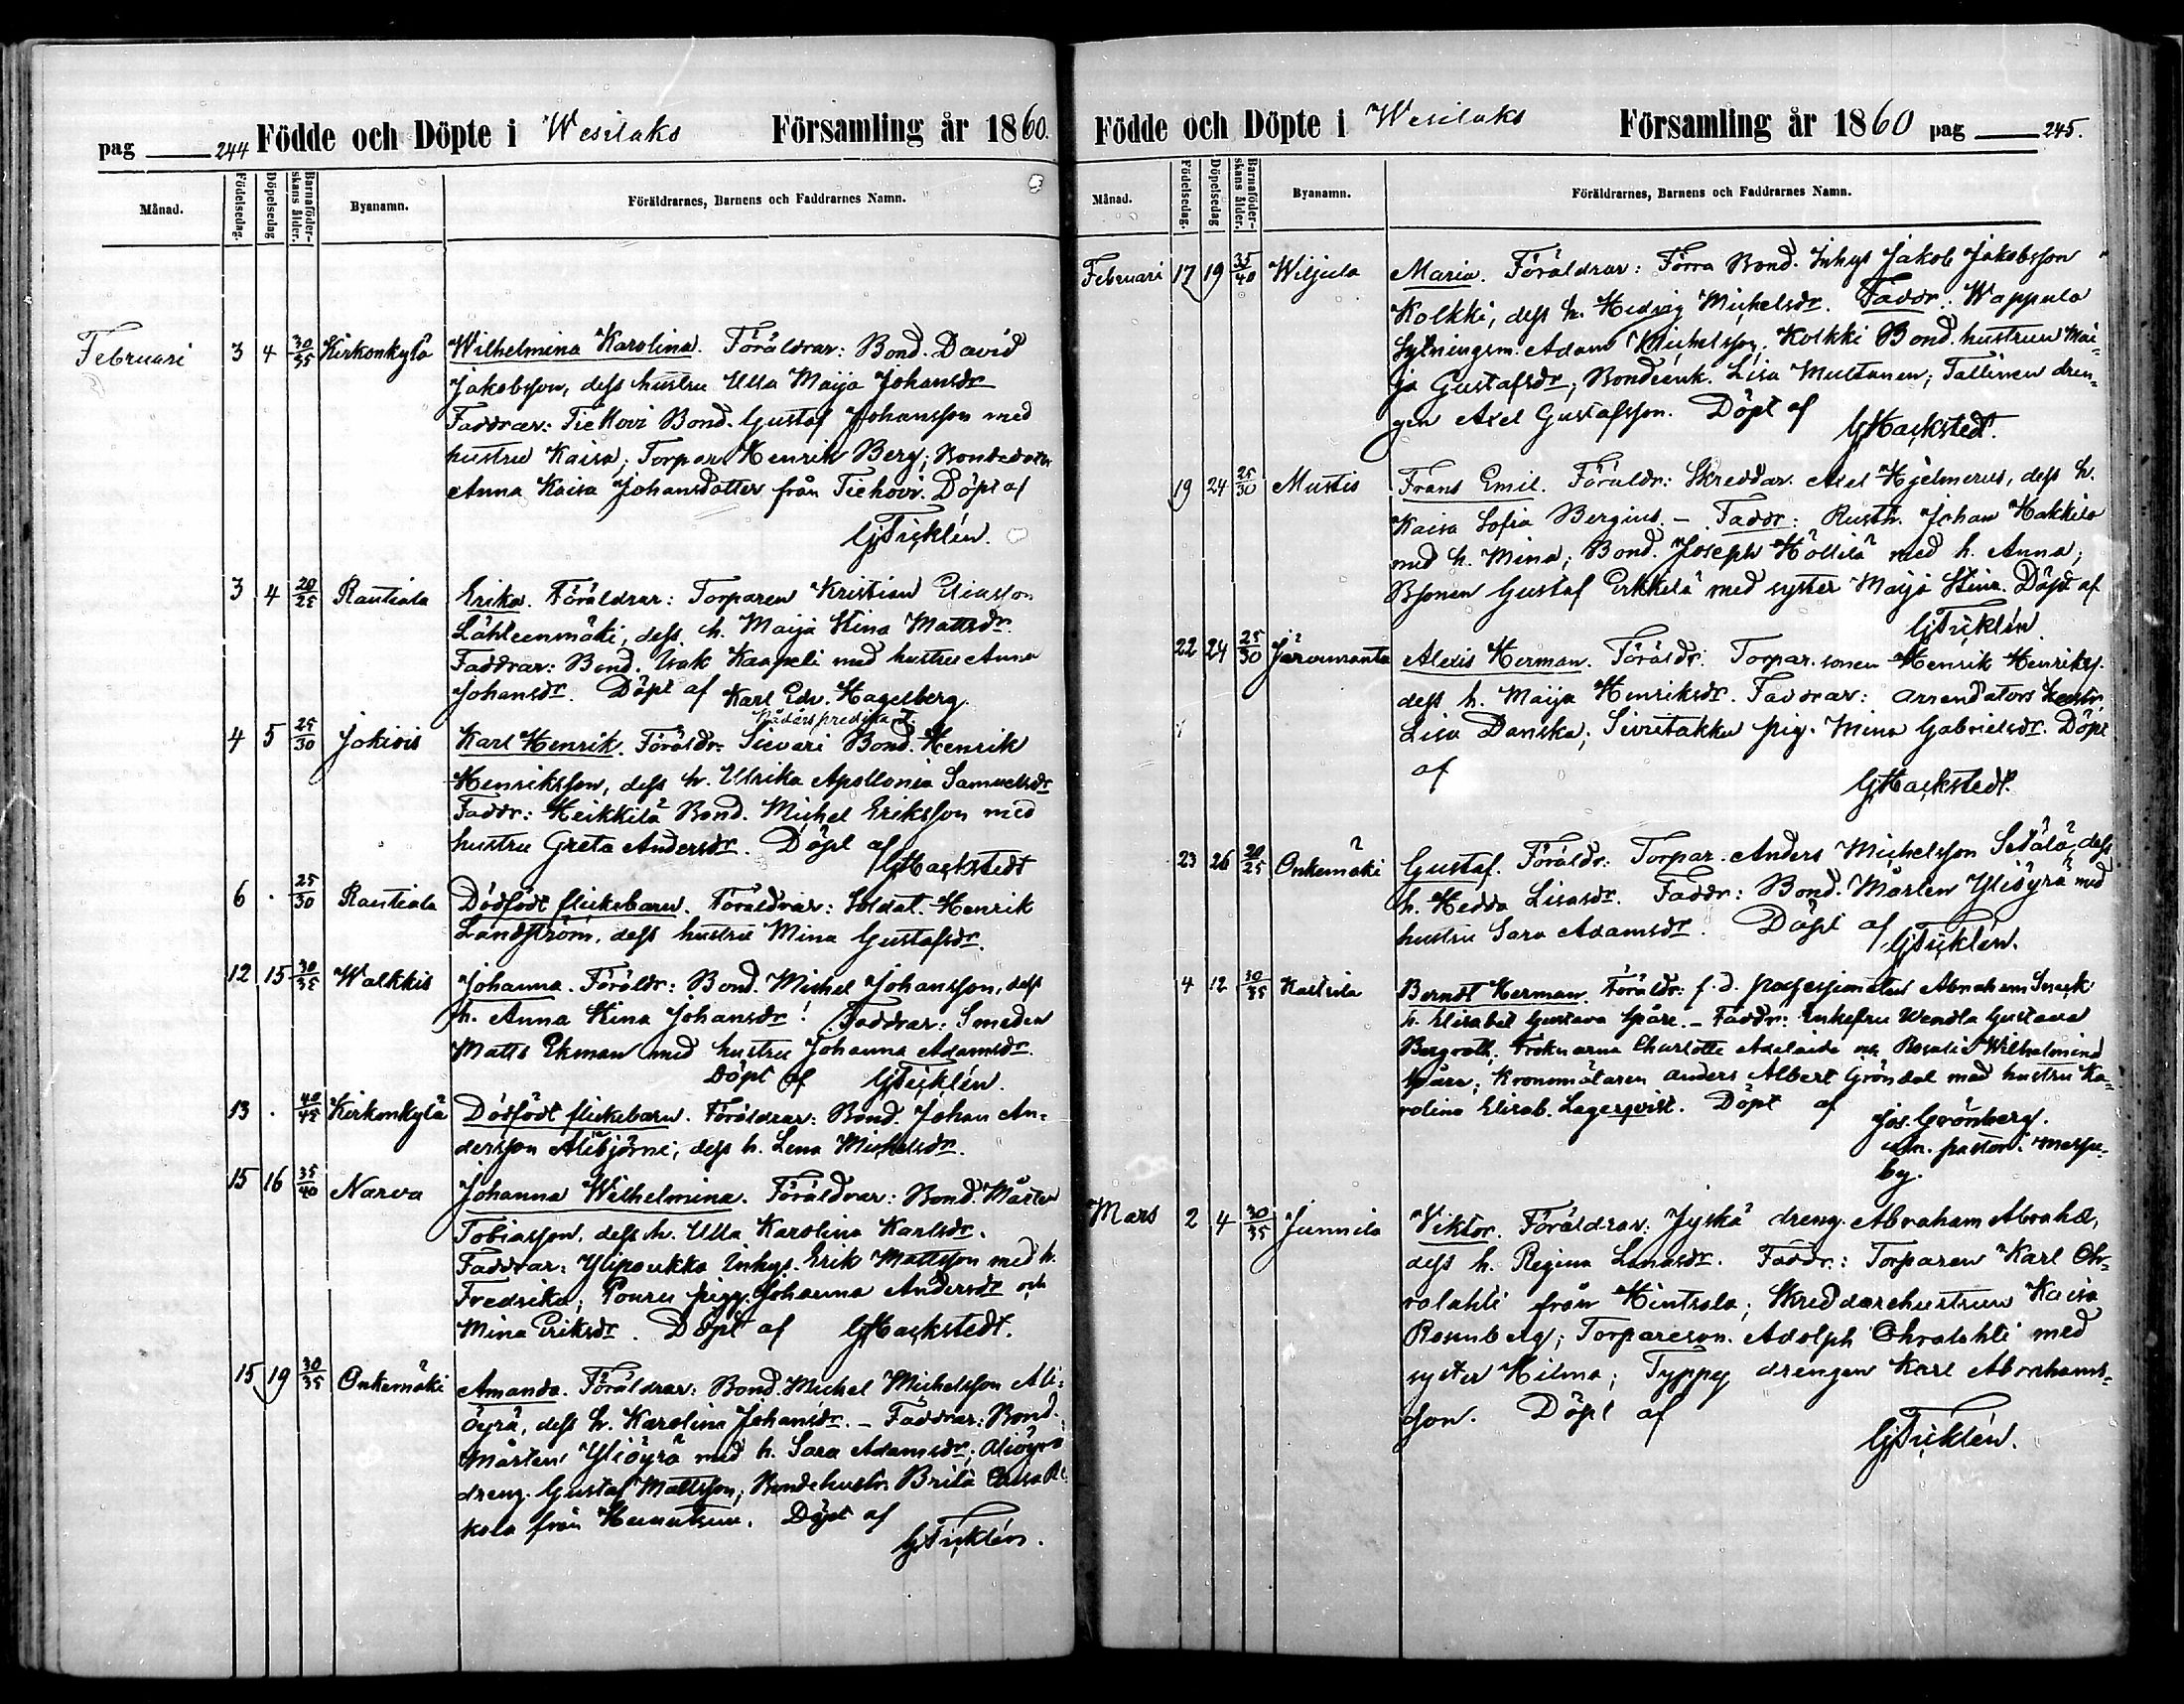 pag 244 Födde och Döpte i Wesilaks Församling år 1860.
Månad. Födelsedag. Döpelsedag Barnaföderskans ålder. Byanamn. Föräldrarnes, Barnens och Faddrarnes Namn.
Februari 3 4 30/35 Kirkonkylä Wilhelmina Karolina. Föräldrar: Bond. David
Jakobsson, dess hustru Ulla Maija Johansdr
Faddrar: Tiehovi Bond. Gustaf Johansson med
hustru Kaisa; Torpar. Henrik Berg; Bondedotter
Anna Kaisa Johansdotter från Tiehovi. Döpt af
GFicklén.
3 4 20/25 Rautiala Erika. Föräldrar: Torparen Kristian Eliasson
Lähteenmäki, dess h. Maija Stina Mattsdr.
Faddrar: Bond. Isak Kaapeli med hustru Anna
Johansdr. Döpt af Karl Edv. Hagelberg.
Nådårspredikant.
4 5 25/30 Jokiois Karl Henrik. Föräldr. Sievari Bond. Henrik
Henriksson, dess h. Ulrika Apollonia Samuelsdr
Faddr: Heikkilä Bond. Michel Eriksson med
hustru Greta Andersdr. Döpt af
GHackstedt
6 . 25/30 Rautiala Dödfödt flickebarn. Föräldrar: Soldat. Henrik
Landström, dess hustru Mina Gustafsdr.
12 15 30/35 Walkkis Johanna. Föräldr: Bond. Michel Johansson, dess
h. Anna Stina Johansdr! Faddrar: Smeden
Matts Ekman med hustru Johanna Adamsdr.
Döpt af GFicklén.
13 . 40/45 Kirkonkylä Dödfödt flickebarn. Föräldrar: Bond. Johan An-
dersson Alibjörni, dess h. Lena Michelsdr.
15 16 35/40 Narva Johanna Wilhelmina. Föräldrar: Bond. Mårten
Tobiasson, dess h. Ulla Karolina Karlsdr.
Faddrar: Ylipoukka Inhys. Erik Mattsson med h.
Fredrika; Pouru pigg. Johanna Andersdr och
Mina Eriksdr. Döpt af GHackstedt.
15 19 30/35 Onkemäki Amanda. Föräldrar: Bond. Michel Michelsson Ali-
öyrä, dess h. Karolina Johansdr. – Faddrar: Bond.
Mårten Yliöyrä med h. Sara Adamsdr; Aliöyrä
dreng. Gustaf Mattsson; Bondehustr. Brita Caisa
kola från Döpt af
GFicklén.
Födde och Döpte i Wesilaks Församling år 1860 pag 245.
Månad. Födelsedag. Döpelsedag Barnaföderskans ålder. Byanamn. Föräldrarnes, Barnens och Faddrarnes Namn.
Februari 17 19 35/40 Wiljula Maria. Föräldrar: Förra Bond. Inhys Jakob Jakobsson
Kolkki, dess h. Hedvig Michelsdr. Faddr. Wappula
Sytningsm. Adam Michelsson, Kolkki Bond. hustrun Mai-
ja Gustafsdr; Bondeenk. Lisa Multanen; Tallinen dren-
gen Axel Gustafsson. Döpt af
GHackstedt.
19 24 25/30 Mustis Frans Emil. Föräldr: Skreddar. Axel Hjelmerus, dess h.
Kaisa Sofia Bergius. – Faddr: Rusth. Johan Hakkila
med h. Mina; Bond. Joseph Hollilä med h. Anna;
Bsonen Gustaf Erkkilä med syster Maija Stina. Döpt af
GFicklén.
22 24 25/30 Järvenranta Alexis Herman. Föräldr. Torpar.sonen Henrik Henrikss.
dess h. Maija Henriksdr. Faddrar: Arrendators hustr.
Lisa Danska; Sivutakka pig. Mina Gabrielsdr. Döpt
af
GHackstedt.
23 26 20/25 Onkemäki Gustaf. Föräldr: Torpar. Anders Michelsson Setälä, dess
h. Hedda Lisasdr. Faddr: Bond. Mårten Yliöyrä med
hustru Sara Adamsdr. Döpt af
GFicklén.
4 12 30/35 Kaltsila Berndt Herman. Föräldr: f. d. possessionaten Abraham Snack
h. Elisabet Gustava Spåre. – Faddr: Enkefru Wendla Gustava
Bergroth; Fröknarna Charlotte Adelaide och Rosalie Wilhelmina
Spåre; Kronomätaren Anders Albert Gröndal med hustru Ka-
rolina Elisab. Lagerqvist. Döpt af
Jos. Grönberg.
adm. pastor i Messu-
by.
Mars 2 4 30/35 Junnila Viktor. Föräldrar: Jyskä dreng. Abraham Abrahs,
dess h. Regina Lenasdr. Faddr.: Torparen Karl Oh-
ralahti från Hintsala; Skreddarehustrun Kaisa
Rosenberg; Torpareson. Adolph Ohralahti med
syster Hilma; Typpy drengen Karl Abrahams-
son. Döpt af
GFicklén.